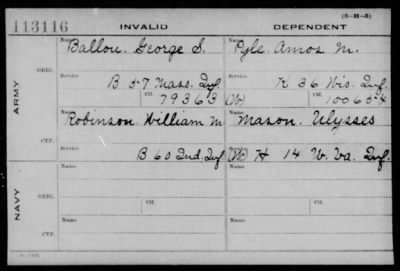 (3-H-8)
113116 INVALID DEPENDENT
Name Name
Ballou. George S. Pyle. Amos M.
ORIG.
Service Service
B 57 Mass. Inf. K 36 Wis. Inf.
Ctf. 79363 (W) Ctf. 100654
ARMY
Name Name
Robinson. William M. Mason. Ulysses
CTF.
Service Service
B 60 Ind. Inf. (W) H 14 W. Va. Inf.
Name Name
ORIG.
Service Ctf. Service Ctf.
NAVY
Name Name
CTF.
Service Service